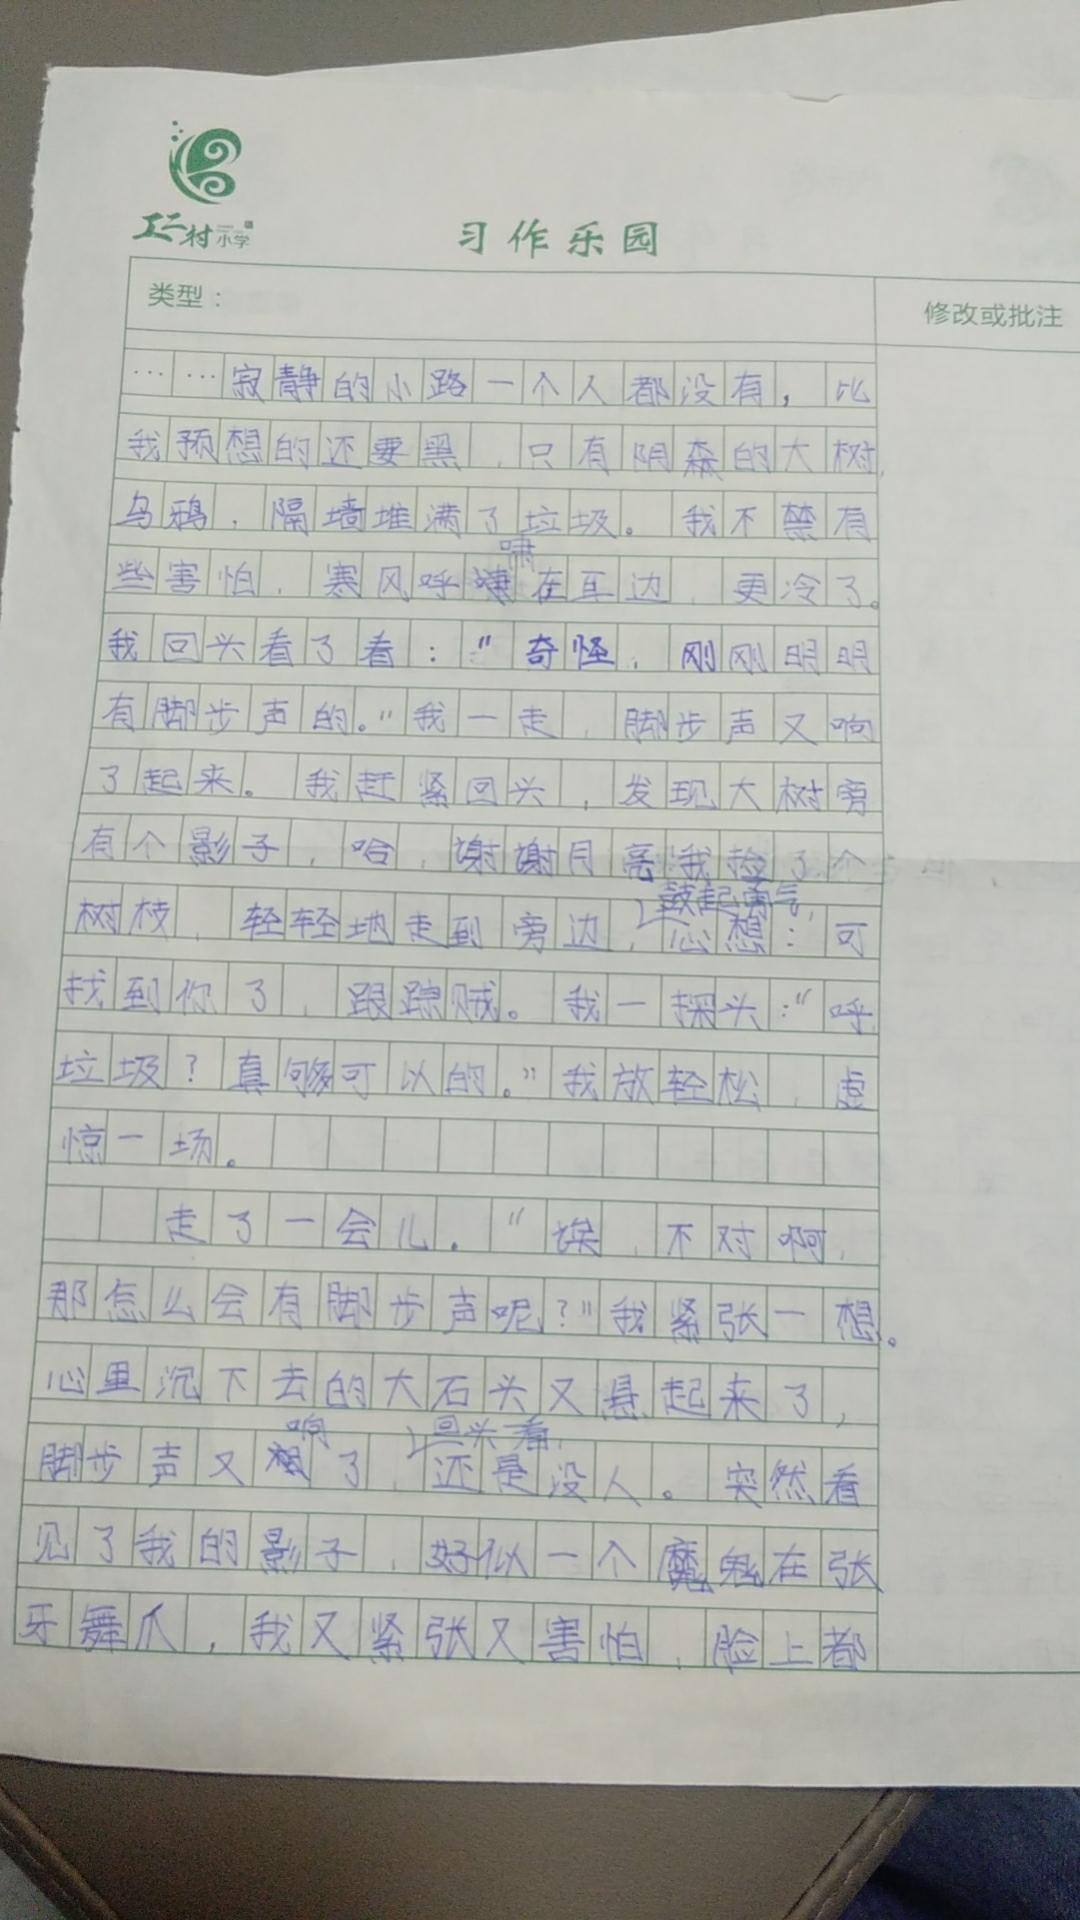 工二村小学
习作乐园
类型：
修改或批注
……寂静的小路一个人都没有，比
我预想的还要黑，只有阴森的大树，
乌鸦，隔墙堆满了垃圾。我不禁有
啸
些害怕，寒风呼在耳边，更冷了。
我回头看了看：“奇怪，刚刚明明
有脚步声的。”我一走，脚步声又响
了起来。我赶紧回头，发现大树旁
有个影子，哈，谢谢月亮我捡了个
鼓起勇气，
树枝，轻轻地走到旁边，心想：可
找到你了，跟踪贼。我一探头：“呼，
垃圾？真够可以的。”我放轻松，虚
惊一场。
走了一会儿。“诶，不对啊，
那怎么会有脚步声呢？”我紧张一想。
心里沉下去的大石头又悬起来了，
响 回头看，
脚步声又了，还是没人。突然看
见了我的影子，好似一个魔鬼在张
牙舞爪，我又紧张又害怕，脸上都